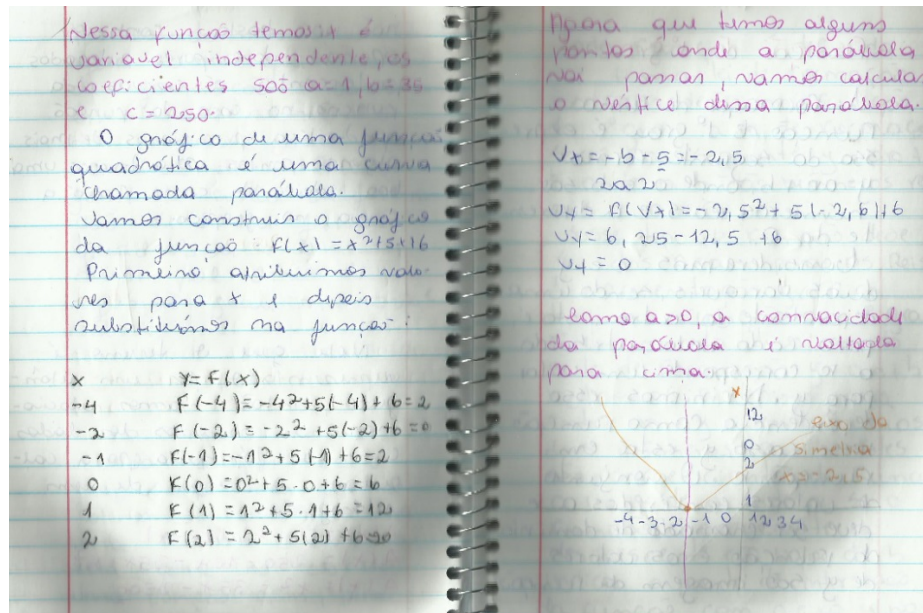 Nessa função temos x é
variavel independente, os
coeficientes são a=1, b=35
e c=250.
O gráfico de uma função
quadrática é uma curva
chamada parábola.
Vamos construir o gráfico
da função: F(x) = x²+5x+6
Primeiro, atribuimos valo
res para x e depois
substituímos na função:
x Y=F(x)
-4 F(-4) = -4²+5(-4)+6=2
-2 F(-2) = -2²+5(-2)+6=0
-1 F(-1) = -1²+5(-1)+6=2
0 F(0) = 0²+5·0+6=6
1 F(1) = 1²+5·1+6=12
2 F(2) = 2²+5(2)+6=20
Agora que temos alguns
pontos onde a parábola
vai passar, vamos calcula
o vértice dessa parábola.
Vx = -b -5 = -2,5
2a 2
Vy = F(Vx) = -2,5² + 5(-2,6)+6
Vy = 6,25-12,5 +6
Vy = 0
Como a>0, a concavidade
da parábola é voltada
para cima.
x
12
eixo da
0 simetria
2 x=-2,5
1
-4 -3 -2 -1 0 1 2 3 4